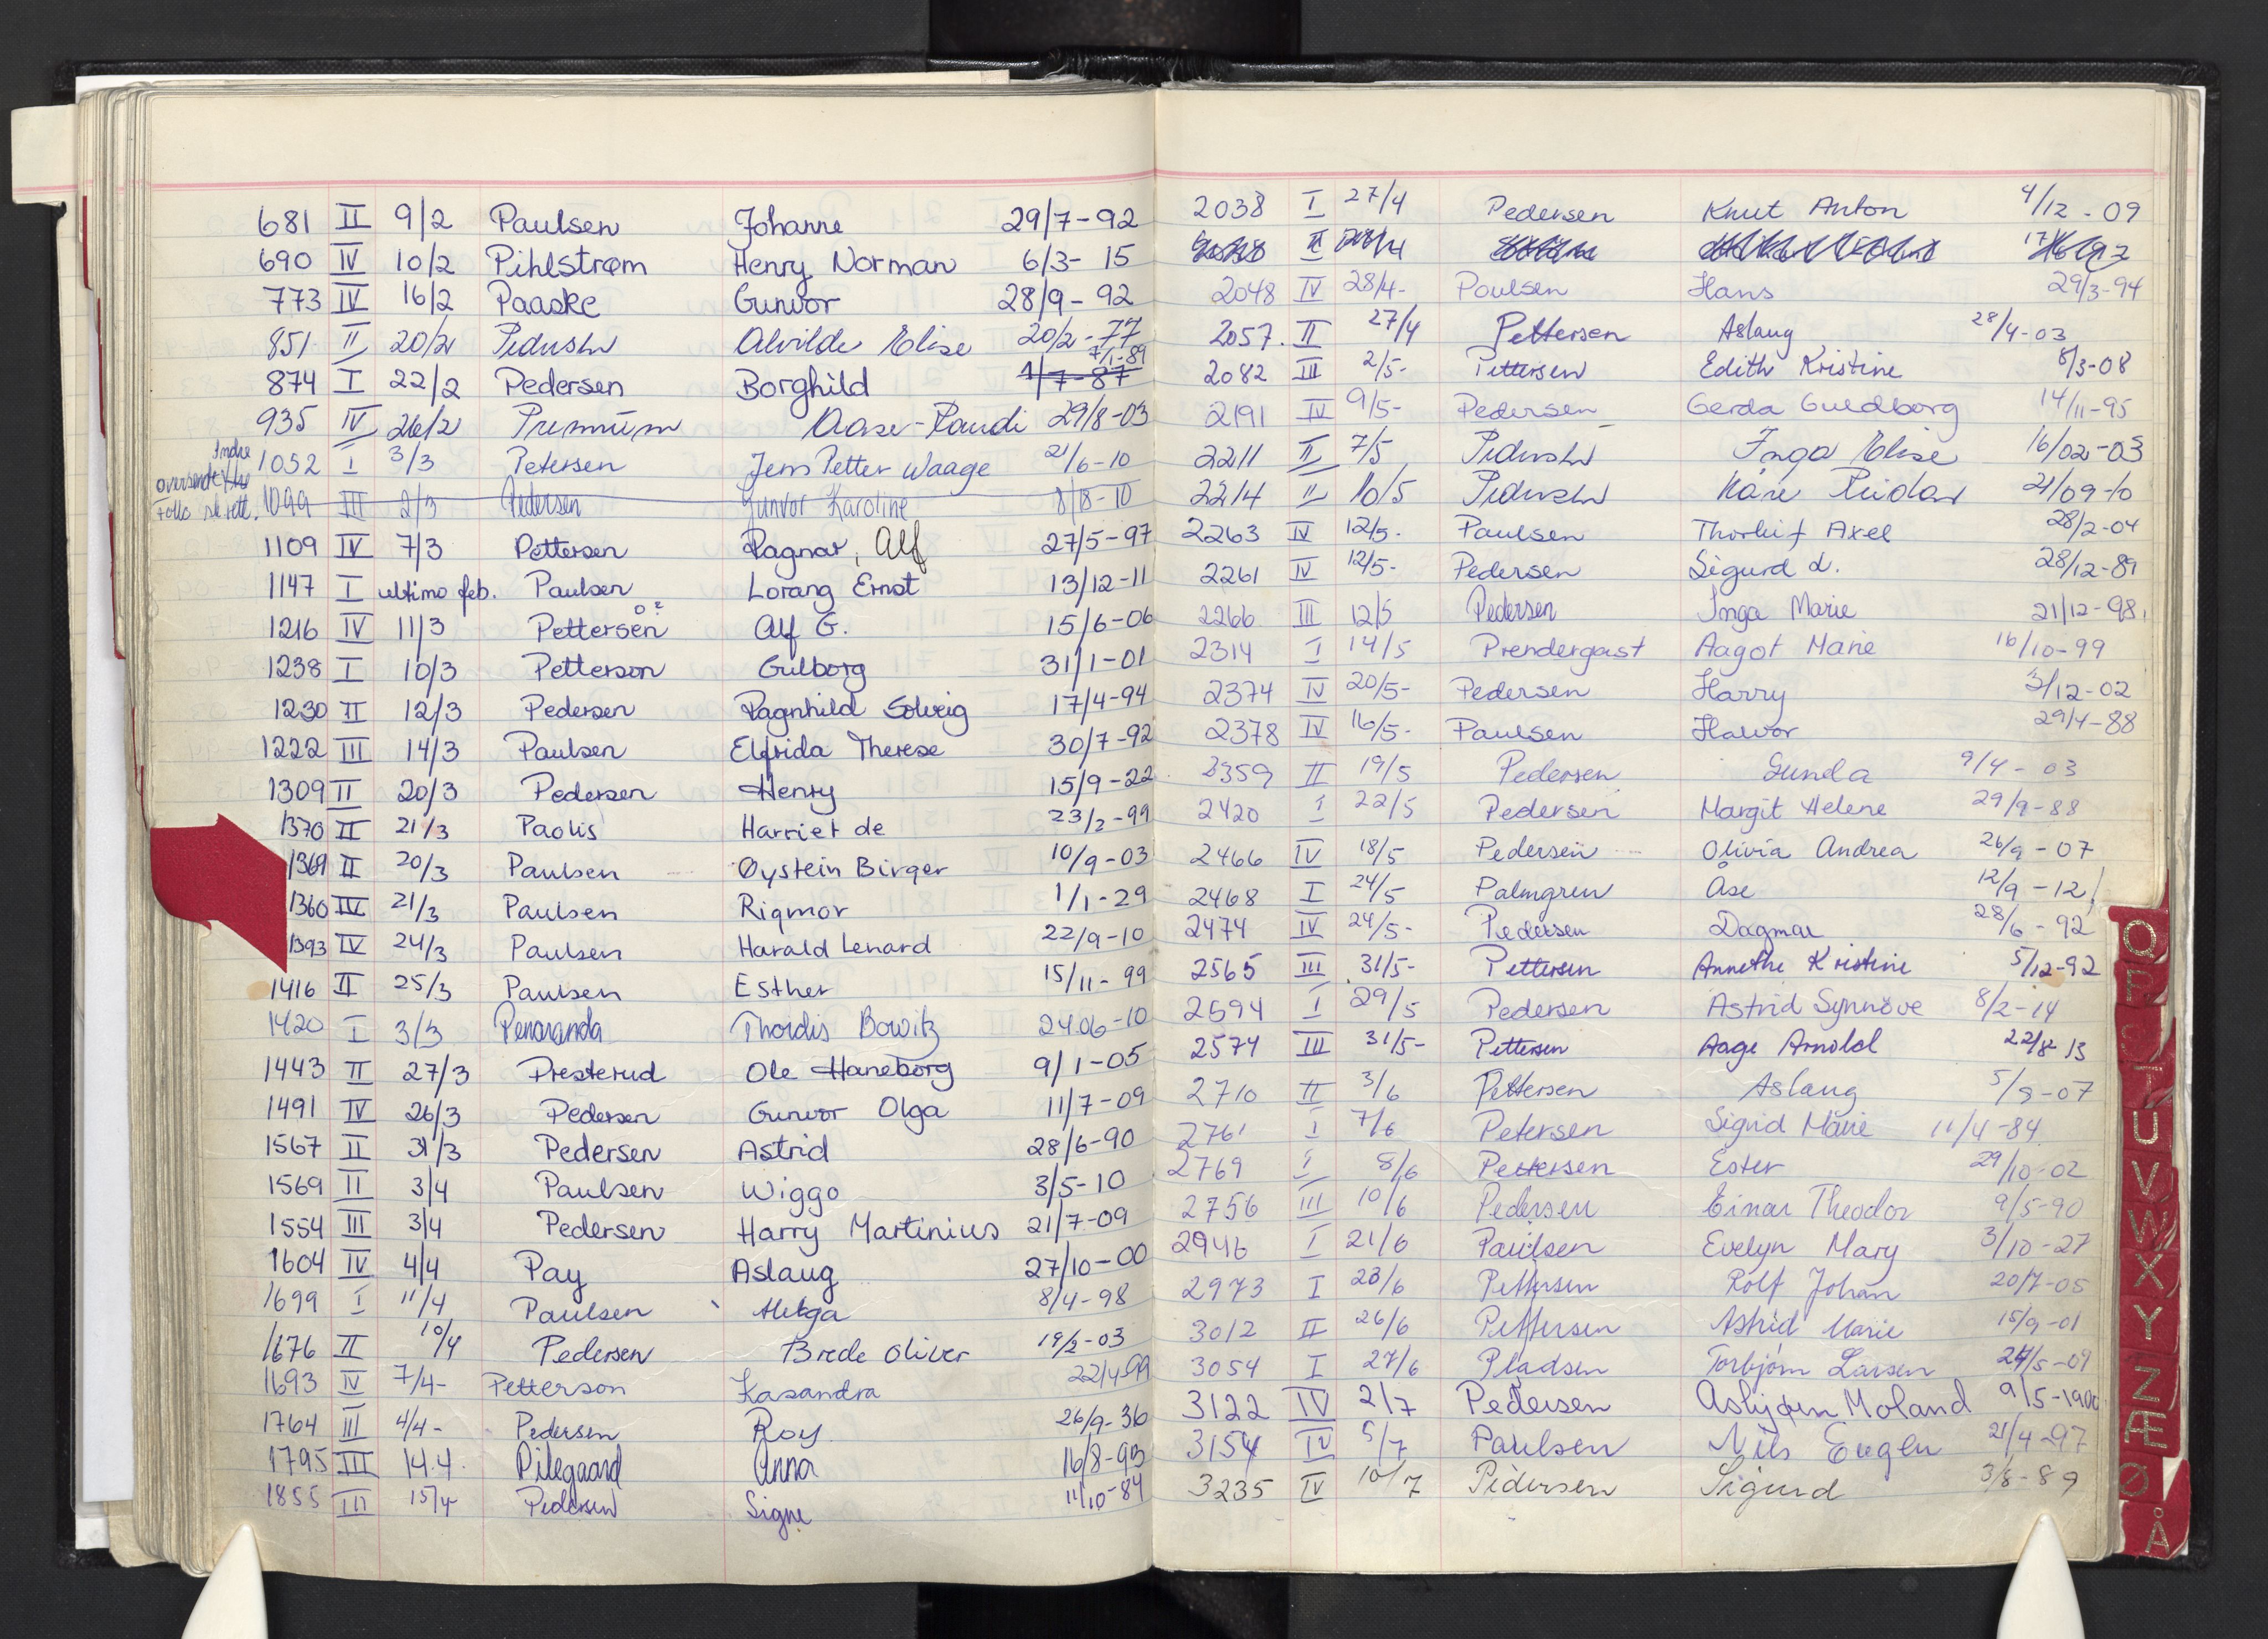 681 II 9/2 Paulsen Johanne 29/7-92
690 IV 10/2 Pihlstrøm Henry Norman 6/3-15
773 IV 16/2 Paaske Gunvor 28/9-92
851 II 20/2 Pedersen Alvilde Elise 20/2-77
7/1-89
874 I 22/2 Pedersen Borghild 1/7-87
935 IV 26/2 Premium Aase-Randi 29/8-03
Indre
1052 I 3/3 Petersen Jens Petter Waage 21/6-10
oversendt
Follo sk.rett. 1099 III 2/3 Pedersen Gunvor Karoline 8/8-10
1109 IV 7/3 Pettersen Ragnar, Alf 27/5-97
1147 I ultimo feb. Paulsen Lorang Ernst 13/12-11
o?
1216 IV 11/3 Pettersen Alf G. 15/6-06
1238 I 10/3 Petterson Gulborg 31/1-01
1230 II 12/3 Pedersen Ragnhild Solveig 17/4-94
1222 III 14/3 Paulsen Elfrida Therese 30/7-92
1309 II 20/3 Pedersen Henry 15/9-22
1370 II 21/3 Paolis Harriet de 23/2-99
1369 II 20/3 Paulsen Øystein Birger 10/9-03
1360 IV 21/3 Paulsen Rigmor 1/1-29
1393 IV 24/3 Paulsen Harald Lenard 22/9-10
1416 II 25/3 Paulsen Esther 15/11-99
1420 I 3/3 Penaranda Thordis Bowitz 24.06-10
1443 II 27/3 Presterud Ole Haneborg 9/1-05
1491 IV 26/3 Pedersen Gunvor Olga 11/7-09
1567 II 31/3 Pedersen Astrid 28/6-90
1569 II 3/4 Paulsen Wiggo 3/5-10
1554 III 3/4 Pedersen Harry Martinius 21/7-09
1604 IV 4/4 Pay Aslaug 27/10-00
1699 I 11/4 Paulsen Helga 8/4-98
1676 II 10/4 Pedersen Brede Oliver 19/2-03
1693 IV 7/4- Petterson Kasandra 22/4-99
1764 III 4/4- Pedersen Roy 26/9-36
1795 III 14.4. Pilegaard Anna 16/8-93
1855 III 15/4 Pedersen Signe 11/10-84
2038 I 27/4 Pedersen Knut Anton 4/12-09
2048 IV 28/4- Poulsen Hans 29/3-94
2057. II 27/4 Pettersen Aslaug 28/4-03
2082 III 2/5- Pettersen Edith Kristine 8/3-08
2191 IV 9/5- Pedersen Gerda Guldborg 14/11-95
2211 II 7/5 Pedersen Inga Elise 16/02-03
2214 II 10/5 Pedersen Kåre Reidar 21/09-10
2263 IV 12/5. Paulsen Thorleif Axel 28/2-04
2261 IV 12/5- Pedersen Sigurd L. 28/12-89
2266 III 12/5 Pedersen Inga Marie 21/12-98.
2314 I 14/5 Prendergast Aagot Marie 16/10-99
2374 IV 20/5- Pedersen Harry 3/12-02
2378 IV 16/5- Paulsen Halvor 29/4-88
2359 II 19/5 Pedersen Gunda 9/4-03
2420 I 22/5 Pedersen Margit Helene 29/9-88
2466 IV 18/5 Pedersen Olivia Andrea 26/9-07
2468 I 24/5 Palmgren Åse 12/9-12
2474 IV 24/5- Pedersen Dagmar 28/6-92
2565 III 31/5- Pettersen Annethe Kristine 5/12-92
2594 I 29/5 Pedersen Astrid Synnöve 8/2-14
2574 III 31/5- Pettersen Aage Arnold 22/8-13
2710 II 3/6 Pettersen Aslaug 5/9-07
2761 I 7/6 Petersen Sigrid Marie 11/4-84
2769 I 8/6 Pettersen Ester 29/10-02
2756 III 10/6 Pedersen Einar Theodor 9/5-90
2946 I 21/6 Paulsen Evelyn Mary 3/10-27
2973 I 23/6 Pettersen Rolf Johan 20/7-05
3012 II 26/6 Pettersen Astrid Marie 15/9-01
3054 I 27/6 Pladsen Torbjørn Larsen 24/5-09
3122 IV 2/7 Pedersen Asbjørn Moland 9/5-1900
3154 IV 5/7 Paulsen Nils Eugen 21/4-97
3235 IV 10/7 Pedersen Sigurd 3/8-89
Q
P
U
V
W
X
Y
Z
Æ
Ø
Å